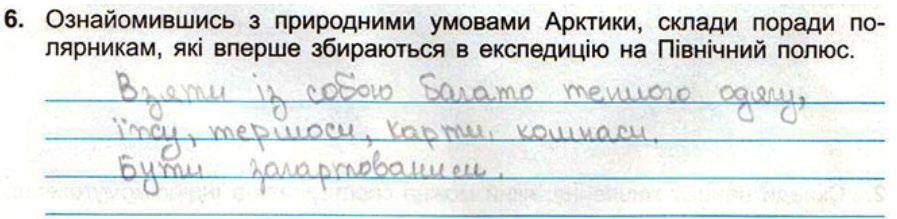 6. Ознайомившись з природними умовами Арктики, склади поради по-
лярникам, які вперше збираються в експедицію на Північний полюс.
Взяти із собою багато теплого одягу,
їжу, термоси, карти, компаси.
Бути загартованими.